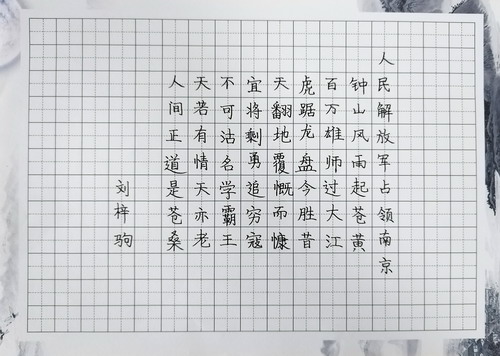 人民解放军占领南京
钟山风雨起苍黄
百万雄师过大江
虎踞龙盘今胜昔
天翻地覆慨而慷
宜将剩勇追穷寇
不可沽名学霸王
天若有情天亦老
人间正道是苍桑
刘梓驹